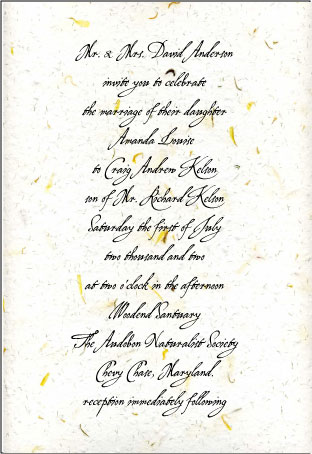 Mr. & Mrs. David Anderson
invite you to celebrate
the marriage of their daughter
Amanda Louise
to Craig Andrew Kelson
son of Mr. Richard Kelson
Saturday the first of July
two thousand and two
at two o'clock in the afternoon
Woodend Santuary
The Audobon Naturalist Society
Chevy Chase, Maryland.
reception immediately following